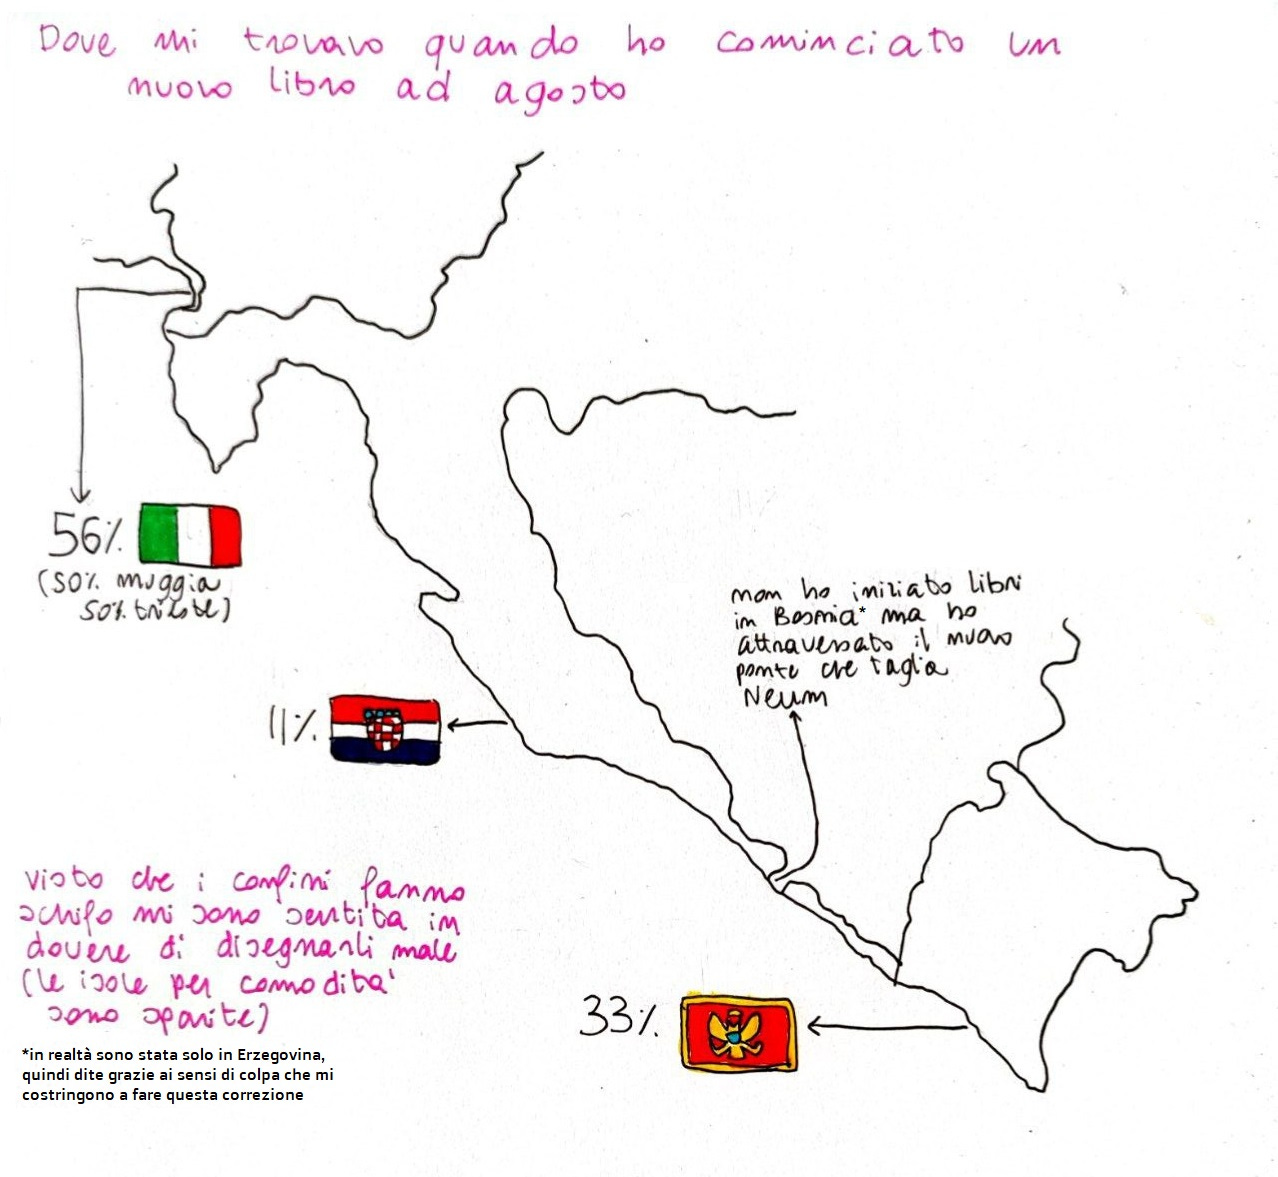 Dove mi trovavo quando ho cominciato un
nuovo libro ad agosto
56%
(50% muggia
50% trieste)
non ho iniziato libri
in Bosnia* ma ho
attraversato il nuovo
ponte che taglia
Neum
11%
visto che i confini fanno
schifo mi sono sentita in
dovere di disegnarli male
(le isole per comodita'
sono sparite)
33%
*in realtà sono stata solo in Erzegovina,
quindi dite grazie ai sensi di colpa che mi
costringono a fare questa correzione